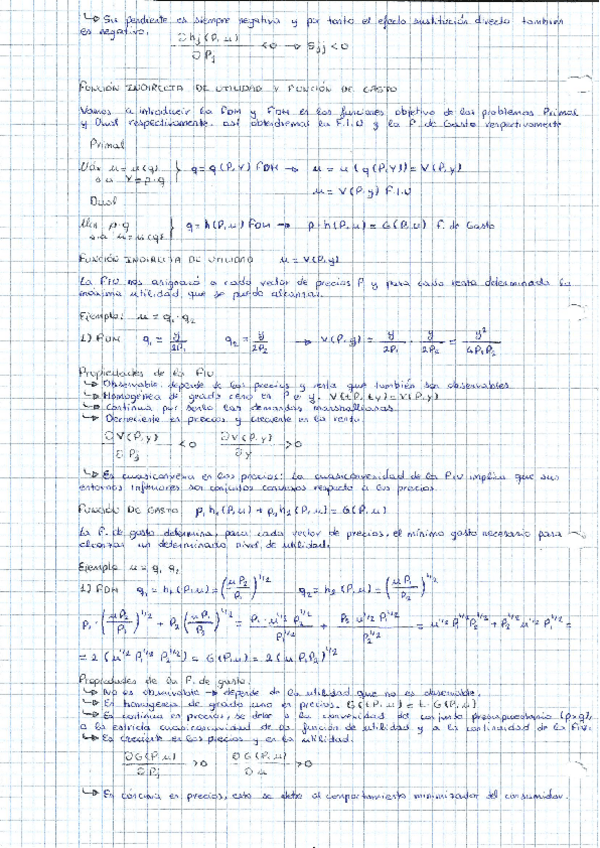 ↳ Su pendiente es siempre negativa y por tanto el efecto sustitución directo también
es negativo.
∂hj(P,u)/∂Pj < 0 → Sjj < 0
FUNCIÓN INDIRECTA DE UTILIDAD Y FUNCIÓN DE GASTO
Vamos a introducir la FDM y FDH en las funciones objetivo de los problemas Primal
y Dual respectivamente. así obtendremos la F.I.U y la F. de Gasto respectivamente
Primal
Máx u = u(q) } q = q(P,Y) FDM → u = u(q(P,Y)) = V(P,y)
s.a Y = p·q u = V(P,y) F.I.U
Dual
Min p·q } q = h(P,u) FDH → p·h(P,u) = G(P,u) F. de Gasto
s.a u = u(q)
FUNCIÓN INDIRECTA DE UTILIDAD u = V(P,y)
La FIU nos asignará a cada vector de precios P y para cada renta determinada la
máxima utilidad que se puede alcanzar.
Ejemplo: u = q1·q2
1) FDM q1 = y/2P1 q2 = y/2P2 → V(P,y) = y/2P1 · y/2P2 = y²/4P1P2
Propiedades de la FIU
↳ Observable. depende de los precios y renta que también son observables
↳ Homogénea de grado cero en P e y. V(tP, ty) = V(P,y)
↳ Continua por serlo las demandas marshallianas.
↳ Decreciente en precios y creciente en la renta
∂V(P,y)/∂Pj < 0 ∂V(P,y)/∂y > 0
↳ Es cuasiconvexa en los precios: La cuasiconvexidad de la FIU implica que sus
entornos inferiores son conjuntos convexos respecto a los precios.
FUNCIÓN DE GASTO p1h1(P,u) + p2h2(P,u) = G(P,u)
La F. de gasto determina, para cada vector de precios, el mínimo gasto necesario para
alcanzar un determinado nivel de utilidad.
Ejemplo u = q1 q2
1) FDH q1 = h1(P,u) = (uP2/P1)^1/2 q2 = h2(P,u) = (uP1/P2)^1/2
P1·(uP2/P1)^1/2 + P2(uP1/P2)^1/2 = P1·u^1/2 P2^1/2/P1^1/2 + P2 u^1/2 P1^1/2/P2^1/2 = u^1/2 P1^1/2 P2^1/2 + P2^1/2 u^1/2 P1^1/2 =
= 2(u^1/2 P1^1/2 P2^1/2) = G(P,u) = 2(u P1P2)^1/2
Propiedades de la F. de gasto.
↳ No es observable → depende de la utilidad que no es observable.
↳ Es homogénea de grado uno en precios. G(tP,u) = t·G(P,u)
↳ Es continua en precios, se debe a la convexidad del conjunto presupuestario (p×q),
a la estricta cuasiconcavidad de la función de utilidad y a la continuidad de la FIU.
↳ Es creciente en los precios y en la utilidad.
∂G(P,u)/∂Pj > 0 ∂G(P,u)/∂u > 0
↳ Es cóncava en precios, esto se debe al comportamiento minimizador del consumidor.